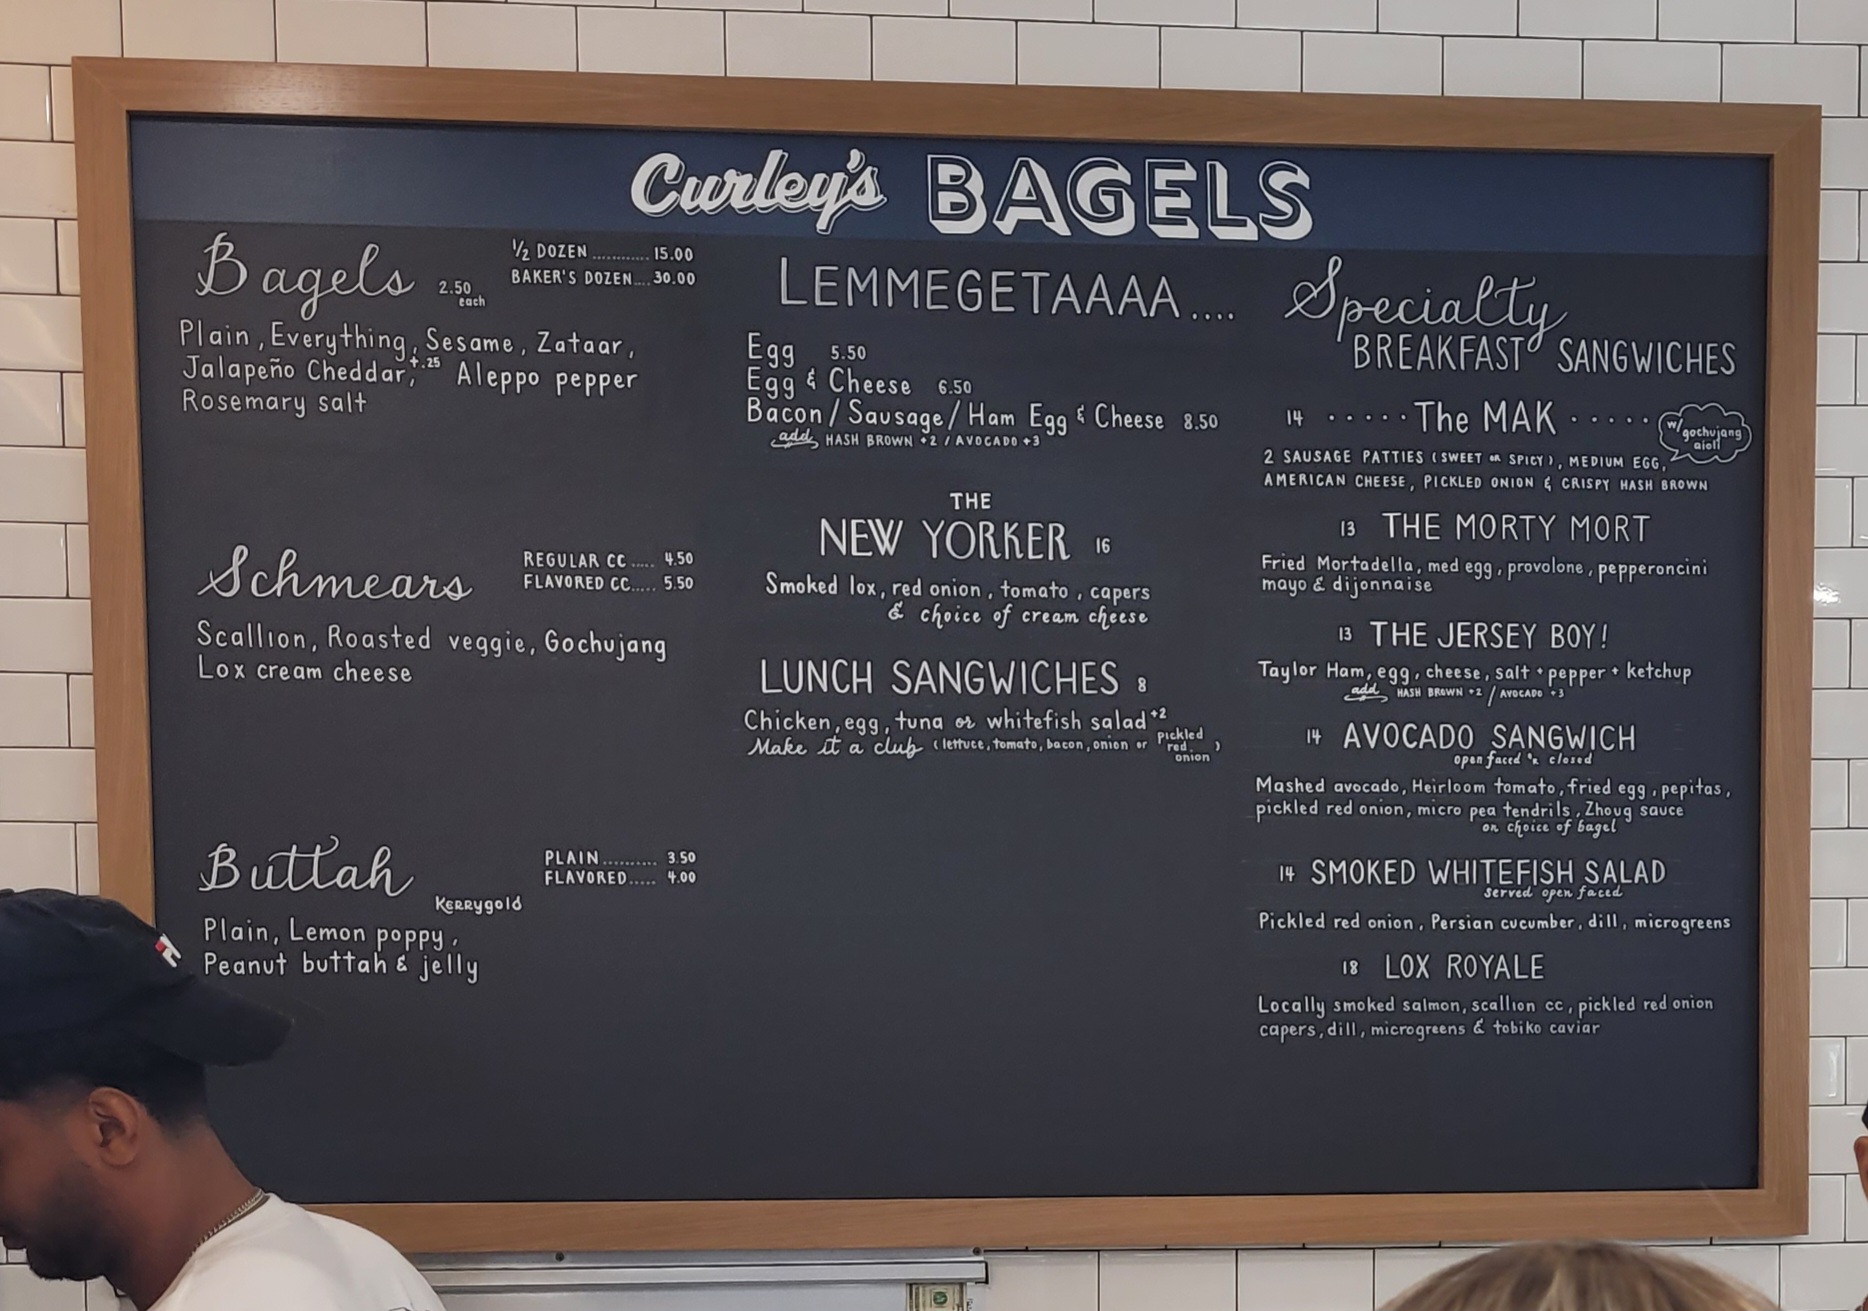 Curley's BAGELS
Bagels 2.50 each
1/2 DOZEN ............ 15.00
BAKER'S DOZEN.... 30.00
Plain, Everything, Sesame, Zataar,
Jalapeño Cheddar, +.25 Aleppo pepper
Rosemary salt
Schmears
REGULAR CC ..... 4.50
FLAVORED CC..... 5.50
Scallion, Roasted veggie, Gochujang
Lox cream cheese
Buttah
Kerrygold
PLAIN.......... 3.50
FLAVORED..... 4.00
Plain, Lemon poppy,
Peanut buttah & jelly
LEMMEGETAAAA....
Egg 5.50
Egg & Cheese 6.50
Bacon/Sausage/Ham Egg & Cheese 8.50
add HASH BROWN +2 / AVOCADO +3
THE
NEW YORKER 16
Smoked lox, red onion, tomato, capers
& choice of cream cheese
LUNCH SANGWICHES 8
Chicken, egg, tuna or whitefish salad +2
Make it a club (lettuce, tomato, bacon, onion or pickled red onion)
Specialty
BREAKFAST SANGWICHES
14 ..... The MAK .....
w/ gochujang aioli
2 SAUSAGE PATTIES (SWEET OR SPICY), MEDIUM EGG,
AMERICAN CHEESE, PICKLED ONION & CRISPY HASH BROWN
13 THE MORTY MORT
Fried Mortadella, med egg, provolone, pepperoncini
mayo & dijonnaise
13 THE JERSEY BOY!
Taylor Ham, egg, cheese, salt + pepper + ketchup
add HASH BROWN +2 / AVOCADO +3
14 AVOCADO SANGWICH
open faced or closed
Mashed avocado, Heirloom tomato, fried egg, pepitas,
pickled red onion, micro pea tendrils, Zhoug sauce
on choice of bagel
14 SMOKED WHITEFISH SALAD
served open faced
Pickled red onion, Persian cucumber, dill, microgreens
18 LOX ROYALE
Locally smoked salmon, scallion cc, pickled red onion
capers, dill, microgreens & tobiko caviar